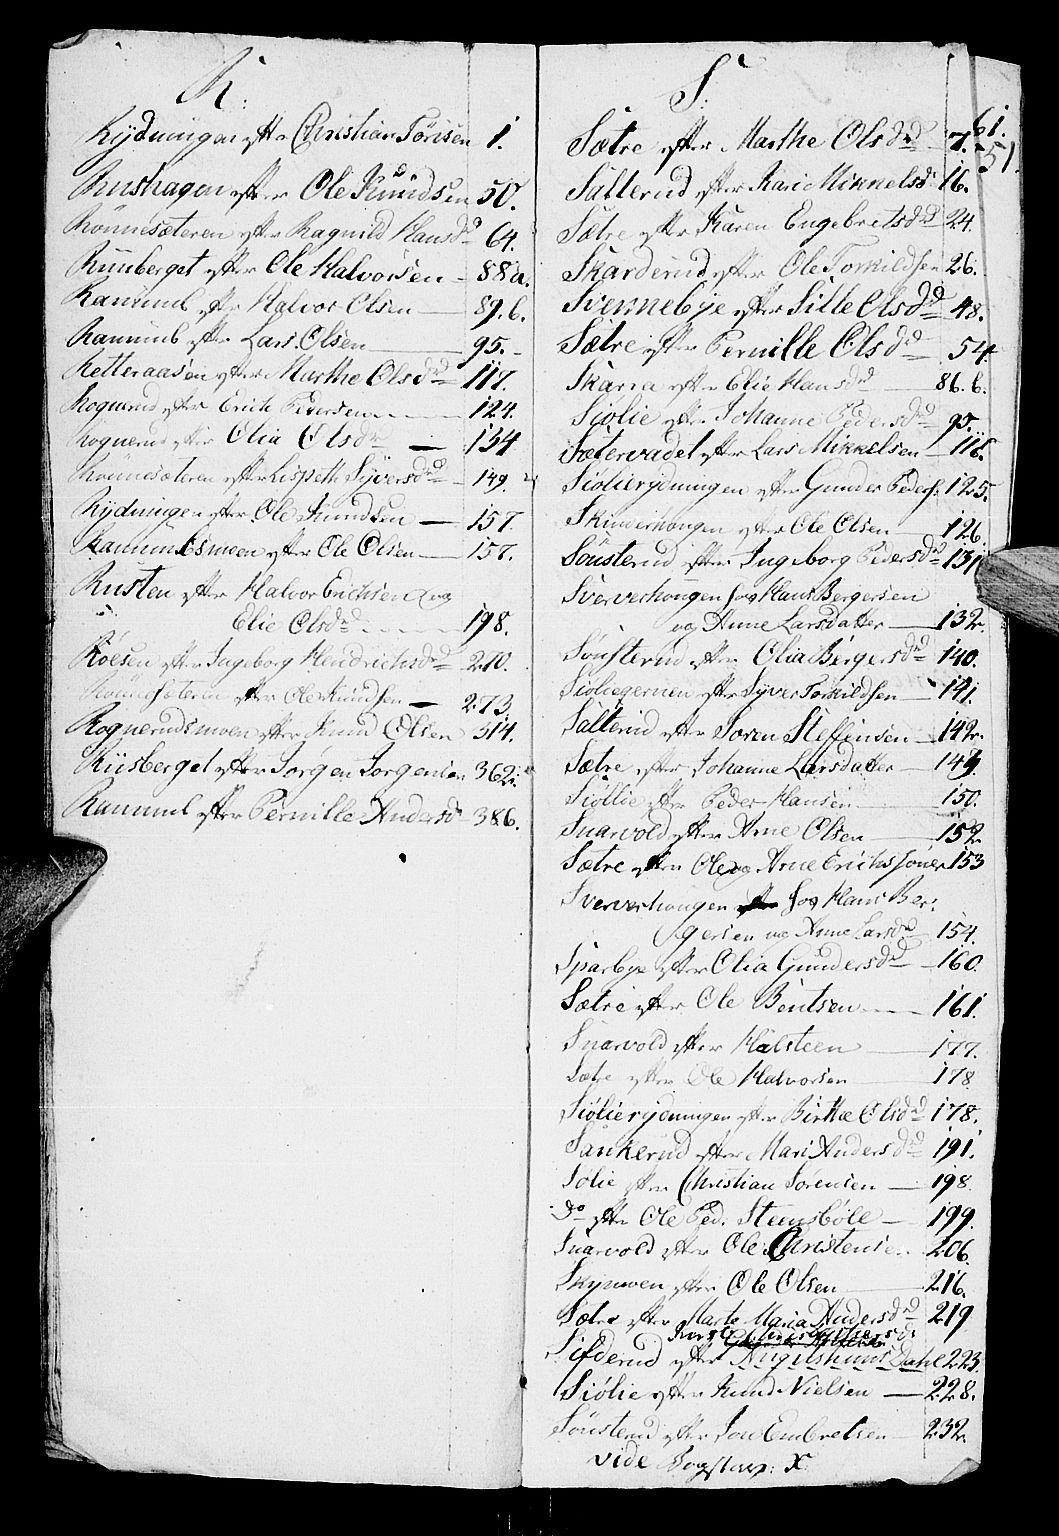 R:
Rydningen efter Christian Törisen 1.
Rushagen efter Ole Knudsen 50.
Rönnesæteren efter Ragnild Hansdr 64.
Ruuberget efter Ole Halvorsen 88a.
Rammul efter Halvor Olsen 89.b.
Rammul efter Lars Olsen 95.
Retteraasen efter Marthe Olsdr 117.
Rognerud efter Erich Pedersen 124.
Rognerud efter Olia Olsdr 134
Rönnesæteren efter Lispeth Syversdr 149.
Rydningen efter Ole Knudsen 157.
Rammulsmoen efter Ole Olsen 157.
Rusten efter Halvor Erichsen og
Elie Olsdr 198.
Roesen efter Ingeborg Hendrichsdr 270.
Rönnesæteren efter Ole Knudsen 273
Rognerudsmoen efter Knud Olsen 314.
Riisberget efter Jørgen Jorgensen 362.
Rammul efter Pernille Andersdr 386.
S:
61.
51.
Sætre efter Marthe Olsdr 7.
Sätterud efter Kari Mikkelsdr 16.
Sætre efter Karen Engebretsdr 24.
Skarderud efter Ole Torkildsen 26.
Svennebye efter Sille Olsdr 48.
Sætre efter Pernille Olsdr 54.
Skaria efter Elie Hansdr 86.b.
Siölie efter Johanne Pedersdr 95.
Sætervadet efter Lars Mikkelsen 116.
Siölierydningen efter Gunder Peders. 125.
Skinderhougen efter Ole Olsen 126.
Sönsterud efter Ingeborg Pedersdr 131
Sververhougen hos Hans Bergersen
og Anne Larsdatter 132.
Sönsterud efter Olia Bergersdr 140.
Siöliegernen efter Syver Torkildsen 141.
Sätterud efter Soren Steffensen 142.
Sætre efter Johanne Larsdatter 149.
Siöllie efter Peder Hansen 150.
Snarvold efter Arne Olsen 152
Sætre efter Ole og Arne Erichssöner 153
Sververhougen hos Hans Ber-
gersen og Anne Larsdr 154.
Sparbye efter Olia Gundersdr 160.
Sætre efter Ole Bentsen 161.
Snarvold efter Halsteen 177.
Sætre efter Ole Halvorsen 178
Siölierydningen efter Birthe Olsdr 178.
Sankerud efter Mari Andersdr 191.
Solie efter Christian Sörensen 198
Do efter Ole Ped. Steensböle 199.
Snarvold efter Ole Christense 206.
Skynoen efter Ole Olsen 216.
Sætre efter Marte Maria Andersdr 219
Sifderud efter Dahl 223.
Siölie efter Knud Nielsen 228.
Sönsterud efter Jon Embretsen 232.
vide Bogstav: X.